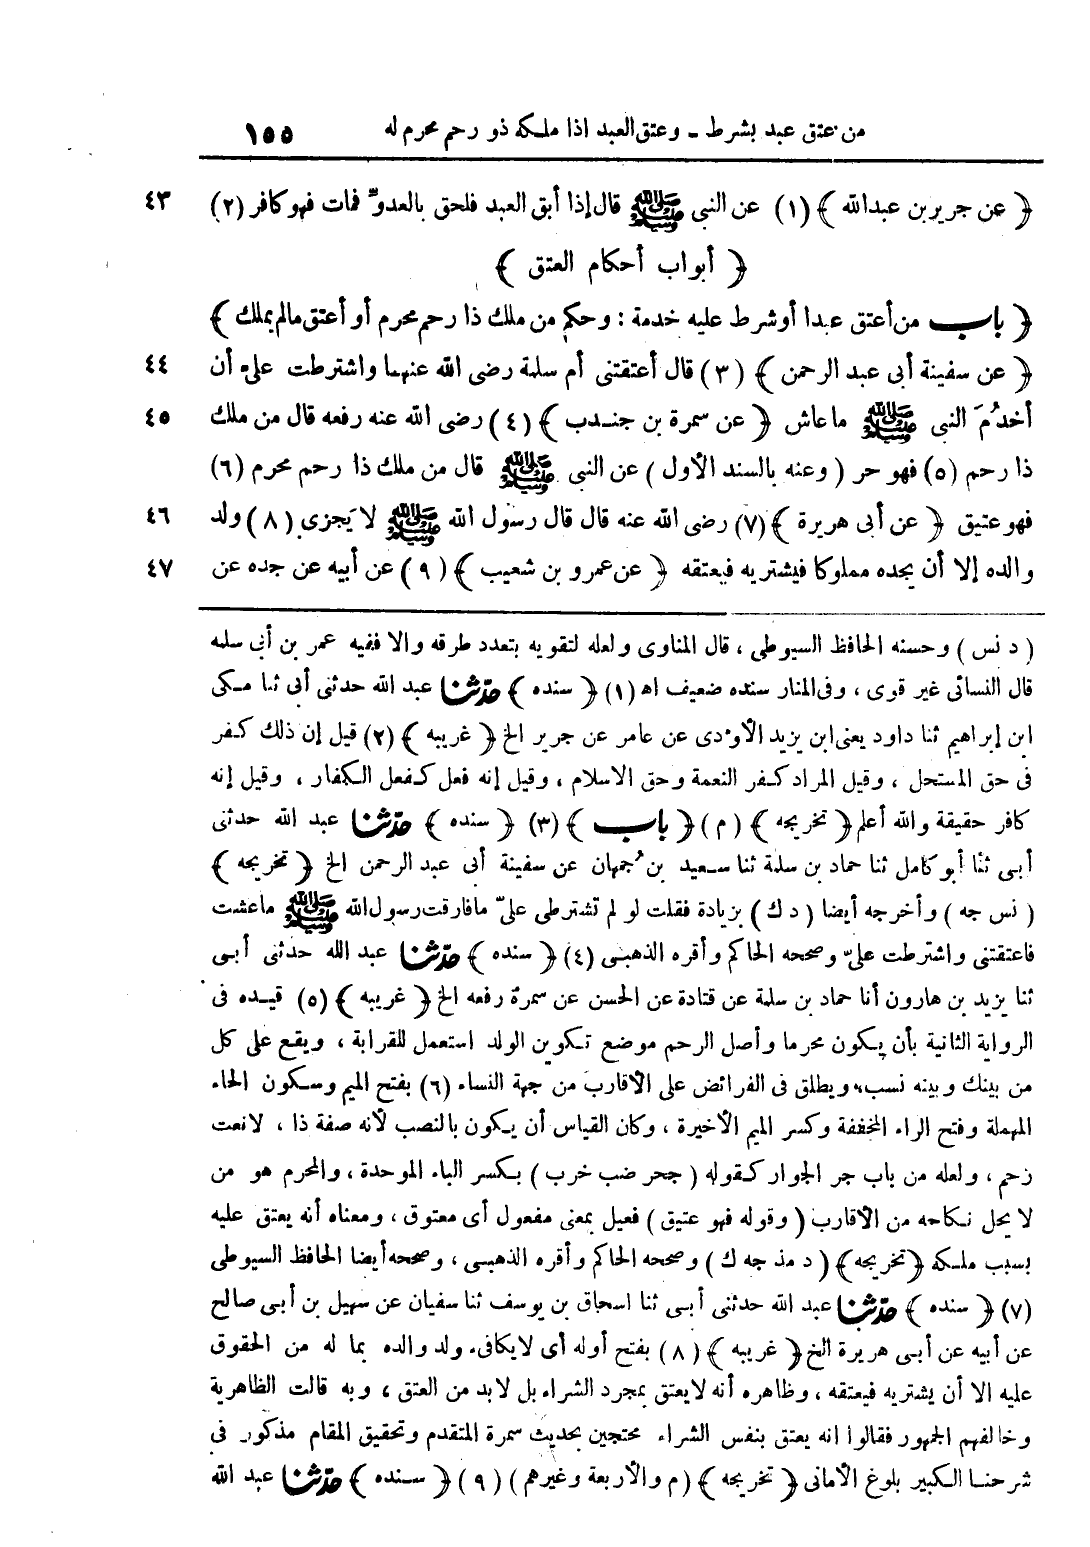 من عتق عبد بشرط ـ وعتق العبد اذا ملكه ذو رحم محرم له ١٥٥
﴿ عن جرير بن عبدالله ﴾ (١) عن النبى ﷺ قال إذا أبق العبد فلحق بالعدوّ فمات فهو كافر (٢) ٤٣
﴿ أبواب أحكام العتق ﴾
﴿ باب من أعتق عبدا أو شرط عليه خدمة : وحكم من ملك ذا رحم محرم أو أعتق مالم يملك ﴾
﴿ عن سفينة أبى عبد الرحمن ﴾ (٣) قال أعتقتنى أم سلمة رضى الله عنهما واشترطت علىّ أن ٤٤
أخدُمَ النبى ﷺ ماعاش ﴿ عن سمرة بن جندب ﴾ (٤) رضى الله عنه رفعه قال من ملك ٤٥
ذا رحم (٥) فهو حر ( وعنه بالسند الأول ) عن النبى ﷺ قال من ملك ذا رحم محرم (٦)
فهو عتيق ﴿ عن أبى هريرة ﴾ (٧) رضى الله عنه قال قال رسول الله ﷺ لا يَجزى (٨) ولد ٤٦
والده إلا أن يجده مملوكا فيشتريه فيعتقه ﴿ عن عمرو بن شعيب ﴾ (٩) عن أبيه عن جده عن ٤٧
( د نس ) وحسنه الحافظ السيوطى ، قال المناوى ولعله لتقويه بتعدد طرقه والا ففيه عمر بن أبى سلمه
قال النسائى غير قوى ، وفى المنار سنده ضعيف اه (١) ﴿ سنده ﴾ حدّثنا عبد الله حدثنى أبى ثنا مكى
ابن إبراهيم ثنا داود يعنى ابن يزيد الأودى عن عامر عن جرير الخ ﴿ غريبه ﴾ (٢) قيل إن ذلك كفر
فى حق المستحل ، وقيل المراد كفر النعمة وحق الاسلام ، وقيل إنه فعل كفعل الكفار ، وقيل إنه
كافر حقيقة والله أعلم ﴿ تخريجه ﴾ ( م ) ﴿ باب ﴾ (٣) ﴿ سنده ﴾ حدّثنا عبد الله حدثنى
أبى ثنا أبو كامل ثنا حماد بن سلمة ثنا سعيد بن جُمهان عن سفينة أبى عبد الرحمن الخ ﴿ تخريجه ﴾
( نس جه ) وأخرجه أيضا ( د ك ) بزيادة فقلت لو لم تشترطى علىّ مافارقت رسول الله ﷺ ماعشت
فاعتقتنى واشترطت علىّ وصححه الحاكم وأقره الذهبى (٤) ﴿ سنده ﴾ حدّثنا عبد الله حدثنى أبى
ثنا يزيد بن هارون أنا حماد بن سلمة عن قتادة عن الحسن عن سمرة رفعه الخ ﴿ غريبه ﴾ (٥) قيده فى
الرواية الثانية بأن يكون محرما وأصل الرحم موضع تكوين الولد استعمل للقرابة ، ويقع على كل
من بينك وبينه نسب، ويطلق فى الفرائض على الأقارب من جهة النساء (٦) بفتح الميم وسكون الحاء
المهملة وفتح الراء المخففة وكسر الميم الأخيرة ، وكان القياس أن يكون بالنصب لأنه صفة ذا ، لانعت
رحم ، ولعله من باب جر الجوار كقوله ( جحر ضب خرب ) بكسر الباء الموحدة ، والمحرم هو من
لا يحل نكاحه من الأقارب ( وقوله فهو عتيق ) فعيل بمعنى مفعول أى معتوق ، ومعناه أنه يعتق عليه
بسبب ملكه ﴿ تخريجه ﴾ ( د مذ جه ك ) وصححه الحاكم وأقره الذهبى ، وصححه أيضا الحافظ السيوطى
(٧) ﴿ سنده ﴾ حدّثنا عبد الله حدثنى أبى ثنا اسحاق بن يوسف ثنا سفيان عن سهيل بن أبى صالح
عن أبيه عن أبى هريرة الخ ﴿ غريبه ﴾ (٨) بفتح أوله أى لايكافىء ولد والده بما له من الحقوق
عليه الا أن يشتريه فيعتقه ، وظاهره أنه لايعتق بمجرد الشراء بل لابد من العتق ، وبه قالت الظاهرية
وخالفهم الجمهور فقالوا انه يعتق بنفس الشراء محتجين بحديث سمرة المتقدم وتحقيق المقام مذكور فى
شرحنا الكبير بلوغ الأمانى ﴿ تخريجه ﴾ ( م والأربعة وغيرهم ) (٩) ﴿ سنده ﴾ حدّثنا عبد الله